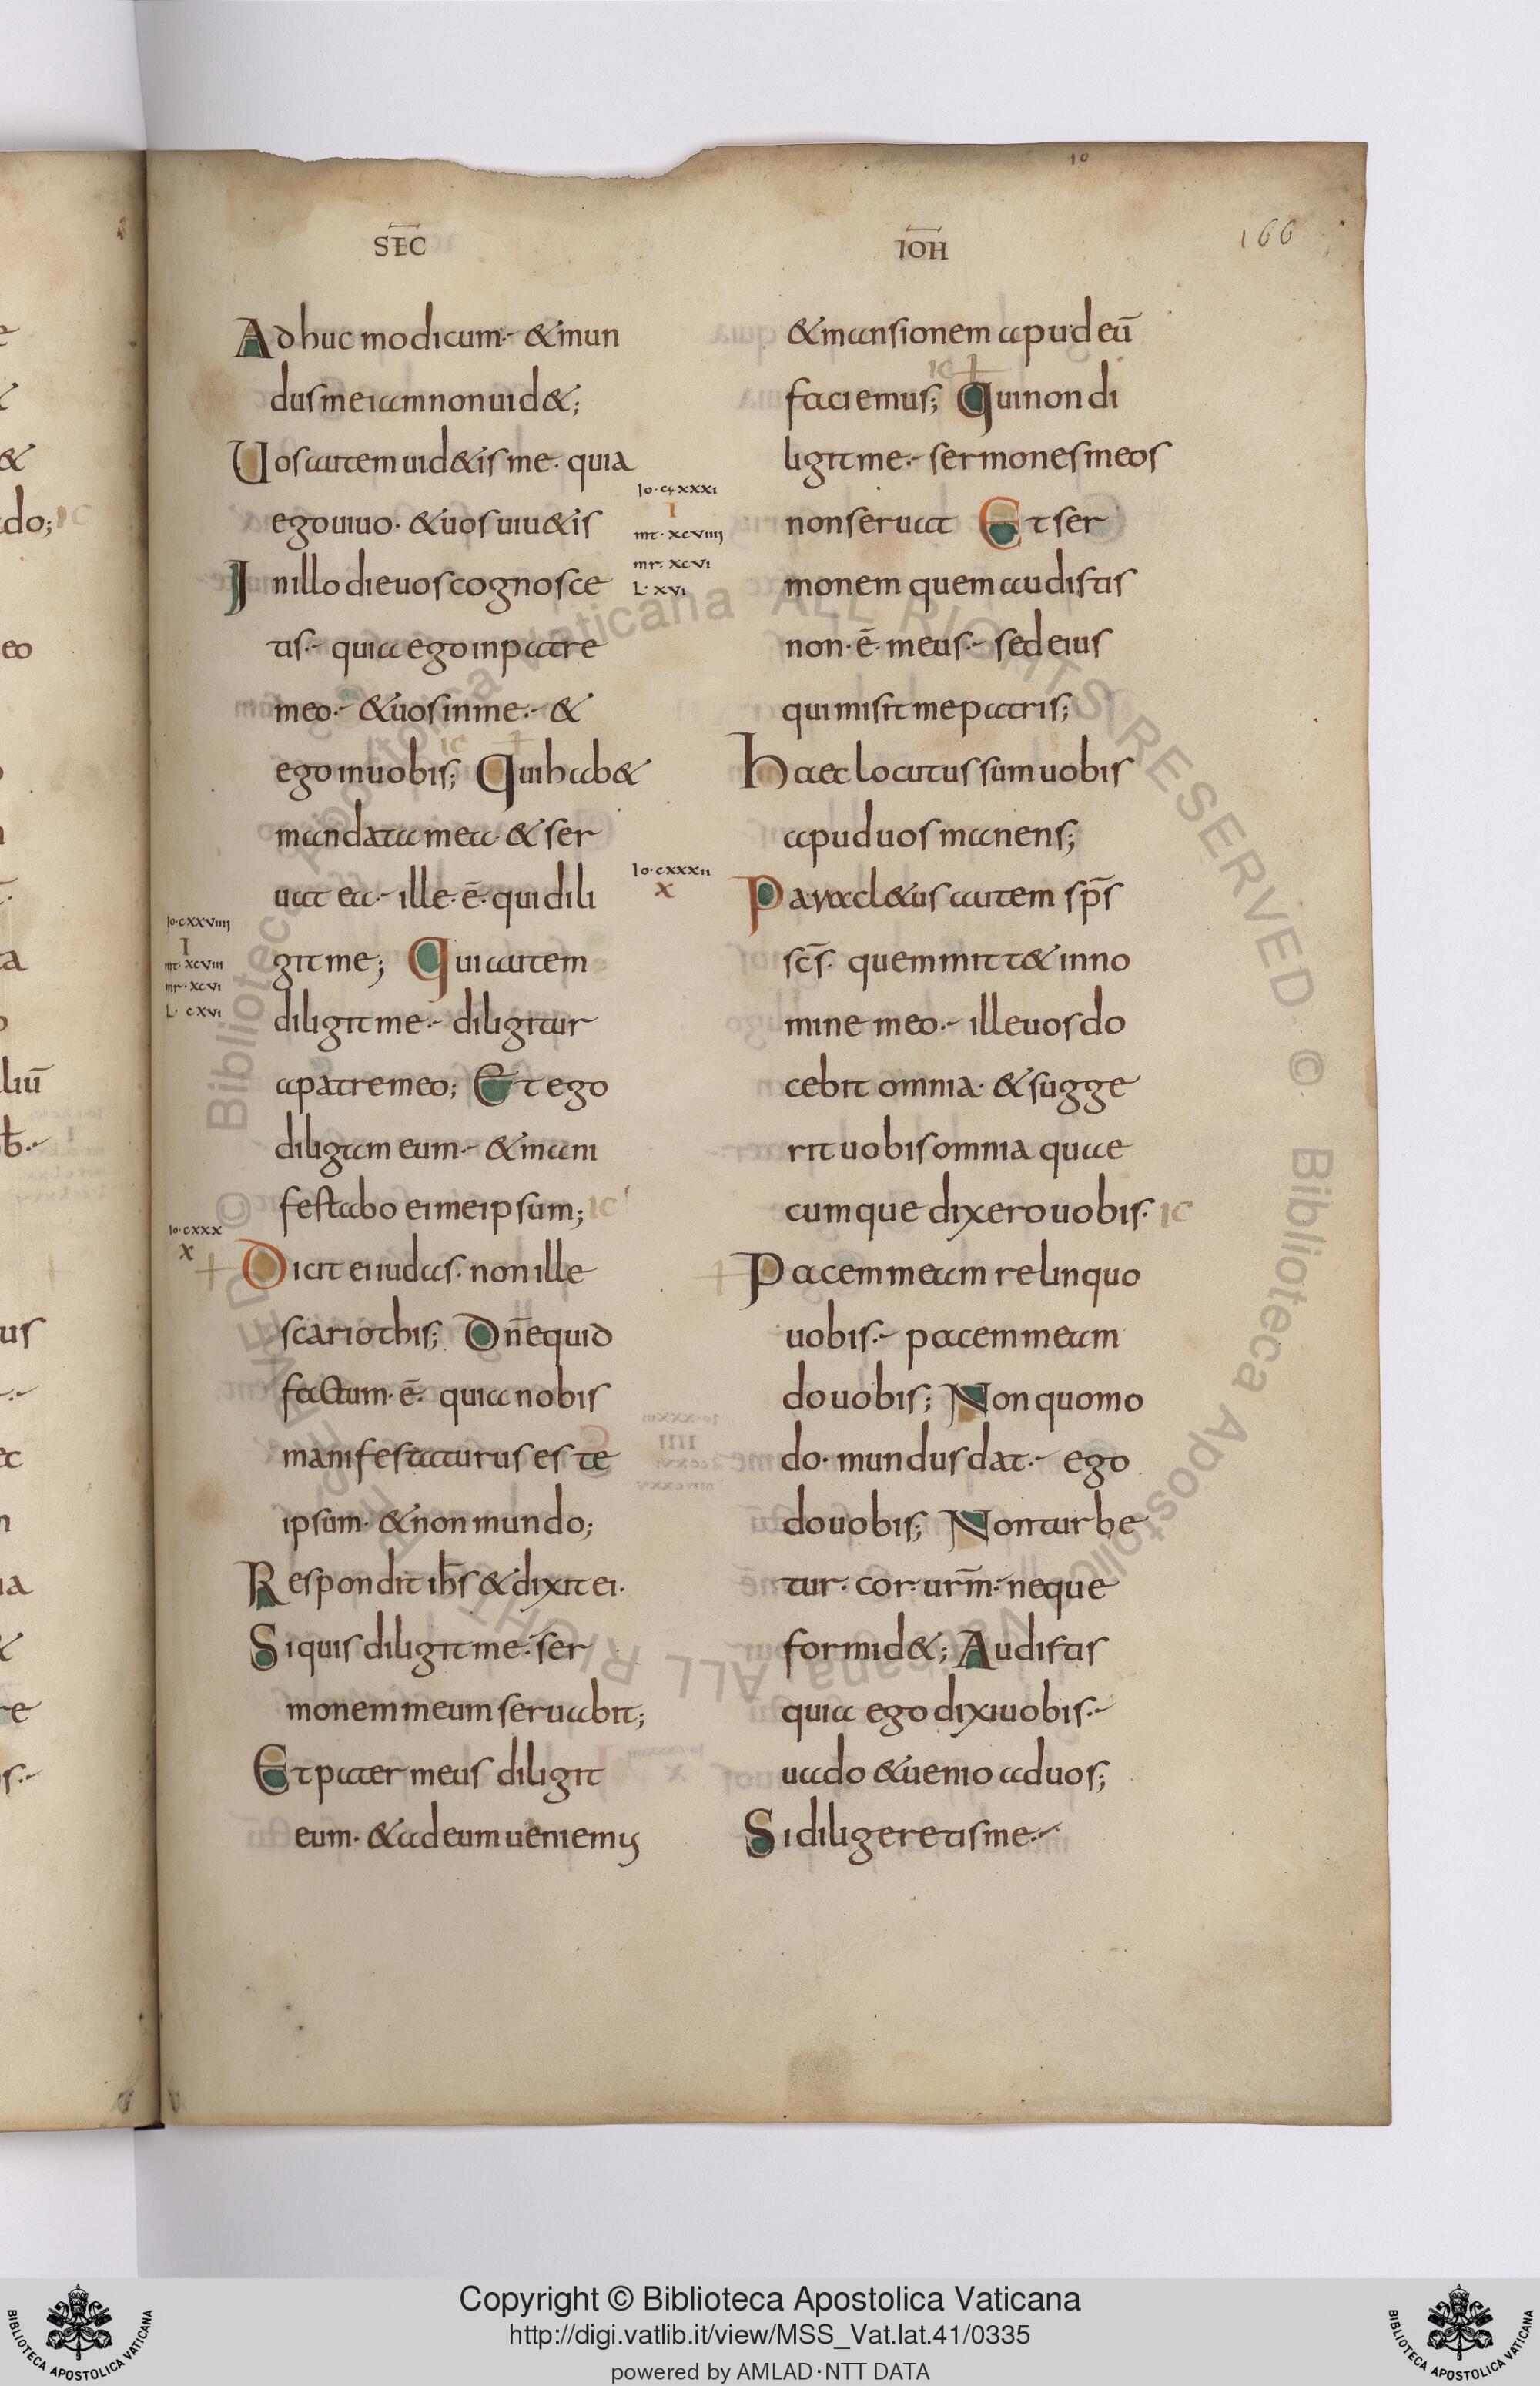 SEC̅
IOH̅
10
166
Adhuc modicum·- & mun
dus me iam non uid&;
Uos autem uid&is me· quia
ego uiuo· & uos uiu&is
In illo die uos cognosce
tis·- quia ego in patre
meo·- & uos in me·- &
ego in uobis; Qui hab&
mandata mea· & ser
uat ea·- ille· ē· qui dili
git me; Qui autem
diligit me·- diligitur
a patre meo; Et ego
diligam eum·- & mani
festabo ei meipsum; ic
Dicit ei iudas· non ille
scariothis; Dn̄e quid
factum· ē· quia nobis
manifestaturus es te
ipsum· & non mundo;
Respondit ih̄s & dixit ei·
Si quis diligit me·- ser
monem meum seruabit;
Et pater meus diligit
eum· & ad eum ueniemus
Io·cxxviiii
I
mt·xcviii
mr·xcvi
L·cxvi
Io·cxxx
x
Io·cxxxi
I
mt·xcviiii
mr·xcvi
L·xvi
Io·cxxxii
x
& mansionem apud eū
ic
faciemus; Qui non di
ligit me·- sermones meos
non seruat Et ser
monem quem audistis
non· ē· meus·- sed eius
qui misit me patris;
Haec locutus sum uobis
apud uos manens;
Paracl&us autem sp̄s
sc̄s· quem mitt& in no
mine meo·- ille uos do
cebit omnia· & sugge
rit uobis omnia quae
cumque dixero uobis· ic
Pacem meam relinquo
uobis·- pacem meam
do uobis; Non quomo
do· mundus dat·- ego
do uobis; Non turbe
tur· cor· ur̄m·- neque
formid&; Audistis
quia ego dixi uobis·-
uado & uenio ad uos;
Si diligeretis me·-
Copyright © Biblioteca Apostolica Vaticana
http://digi.vatlib.it/view/MSS_Vat.lat.41/0335
powered by AMLAD·NTT DATA
BIBLIOTECA APOSTOLICA VATICANA
BIBLIOTECA APOSTOLICA VATICANA
© Biblioteca Apostolica Vaticana ALL RIGHTS RESERVED
© Biblioteca Apostolica Vaticana ALL RIGHTS RESERVED